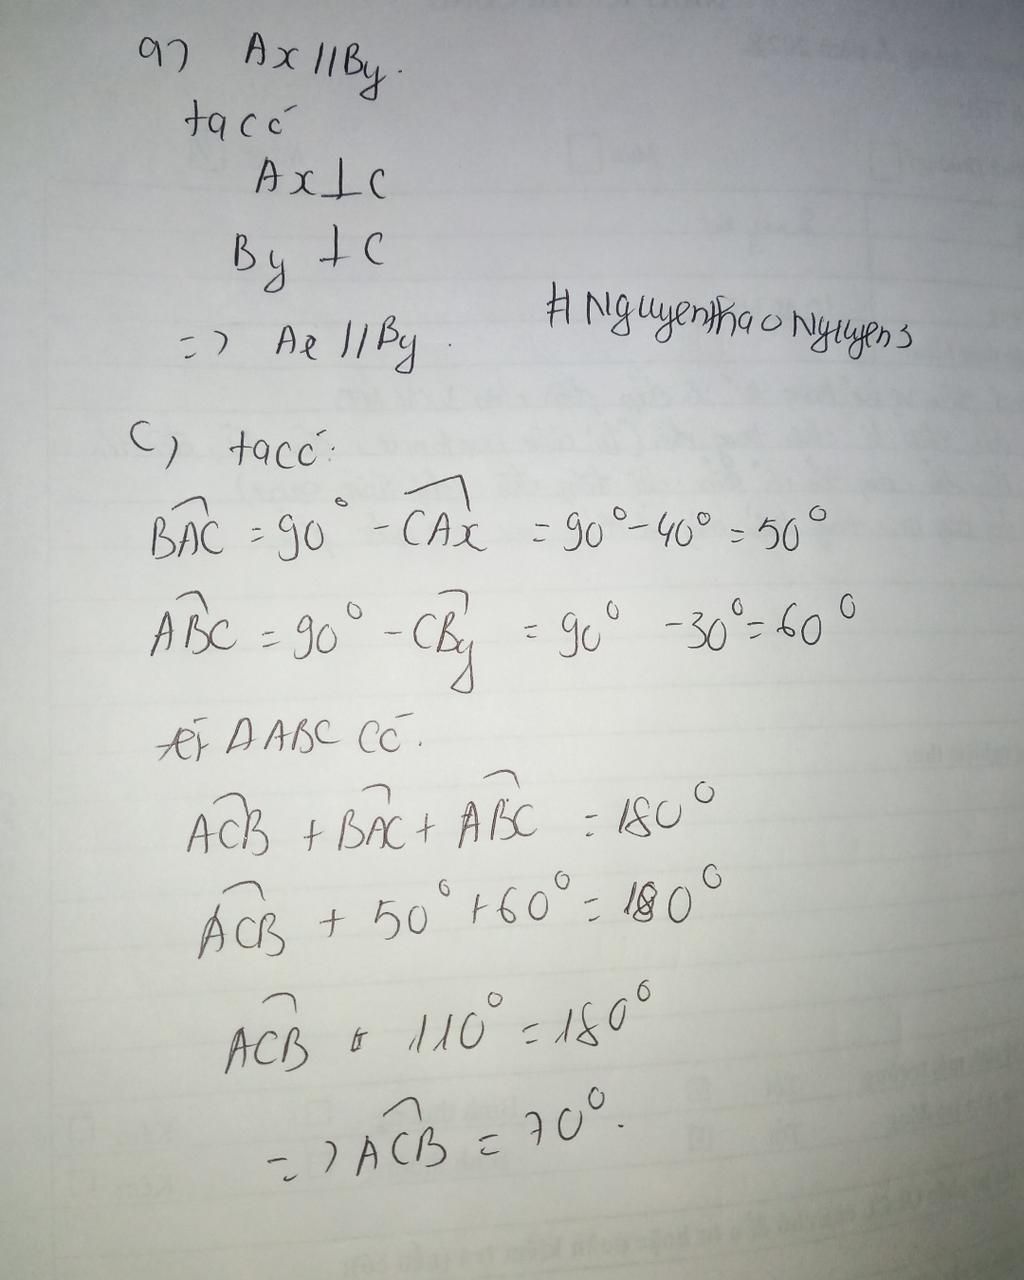 a) Ax // By.
ta có
Ax ⊥ C
By ⊥ C
=> Ax // By.
# NguyenThaoNguyen3
c) ta có:
BAC = 90° - CAx = 90° - 40° = 50°
ABC = 90° - CBy = 90° - 30° = 60°
Δ ABC có.
ACB + BAC + ABC = 180°
ACB + 50° + 60° = 180°
ACB + 110° = 180°
=> ACB = 70°.